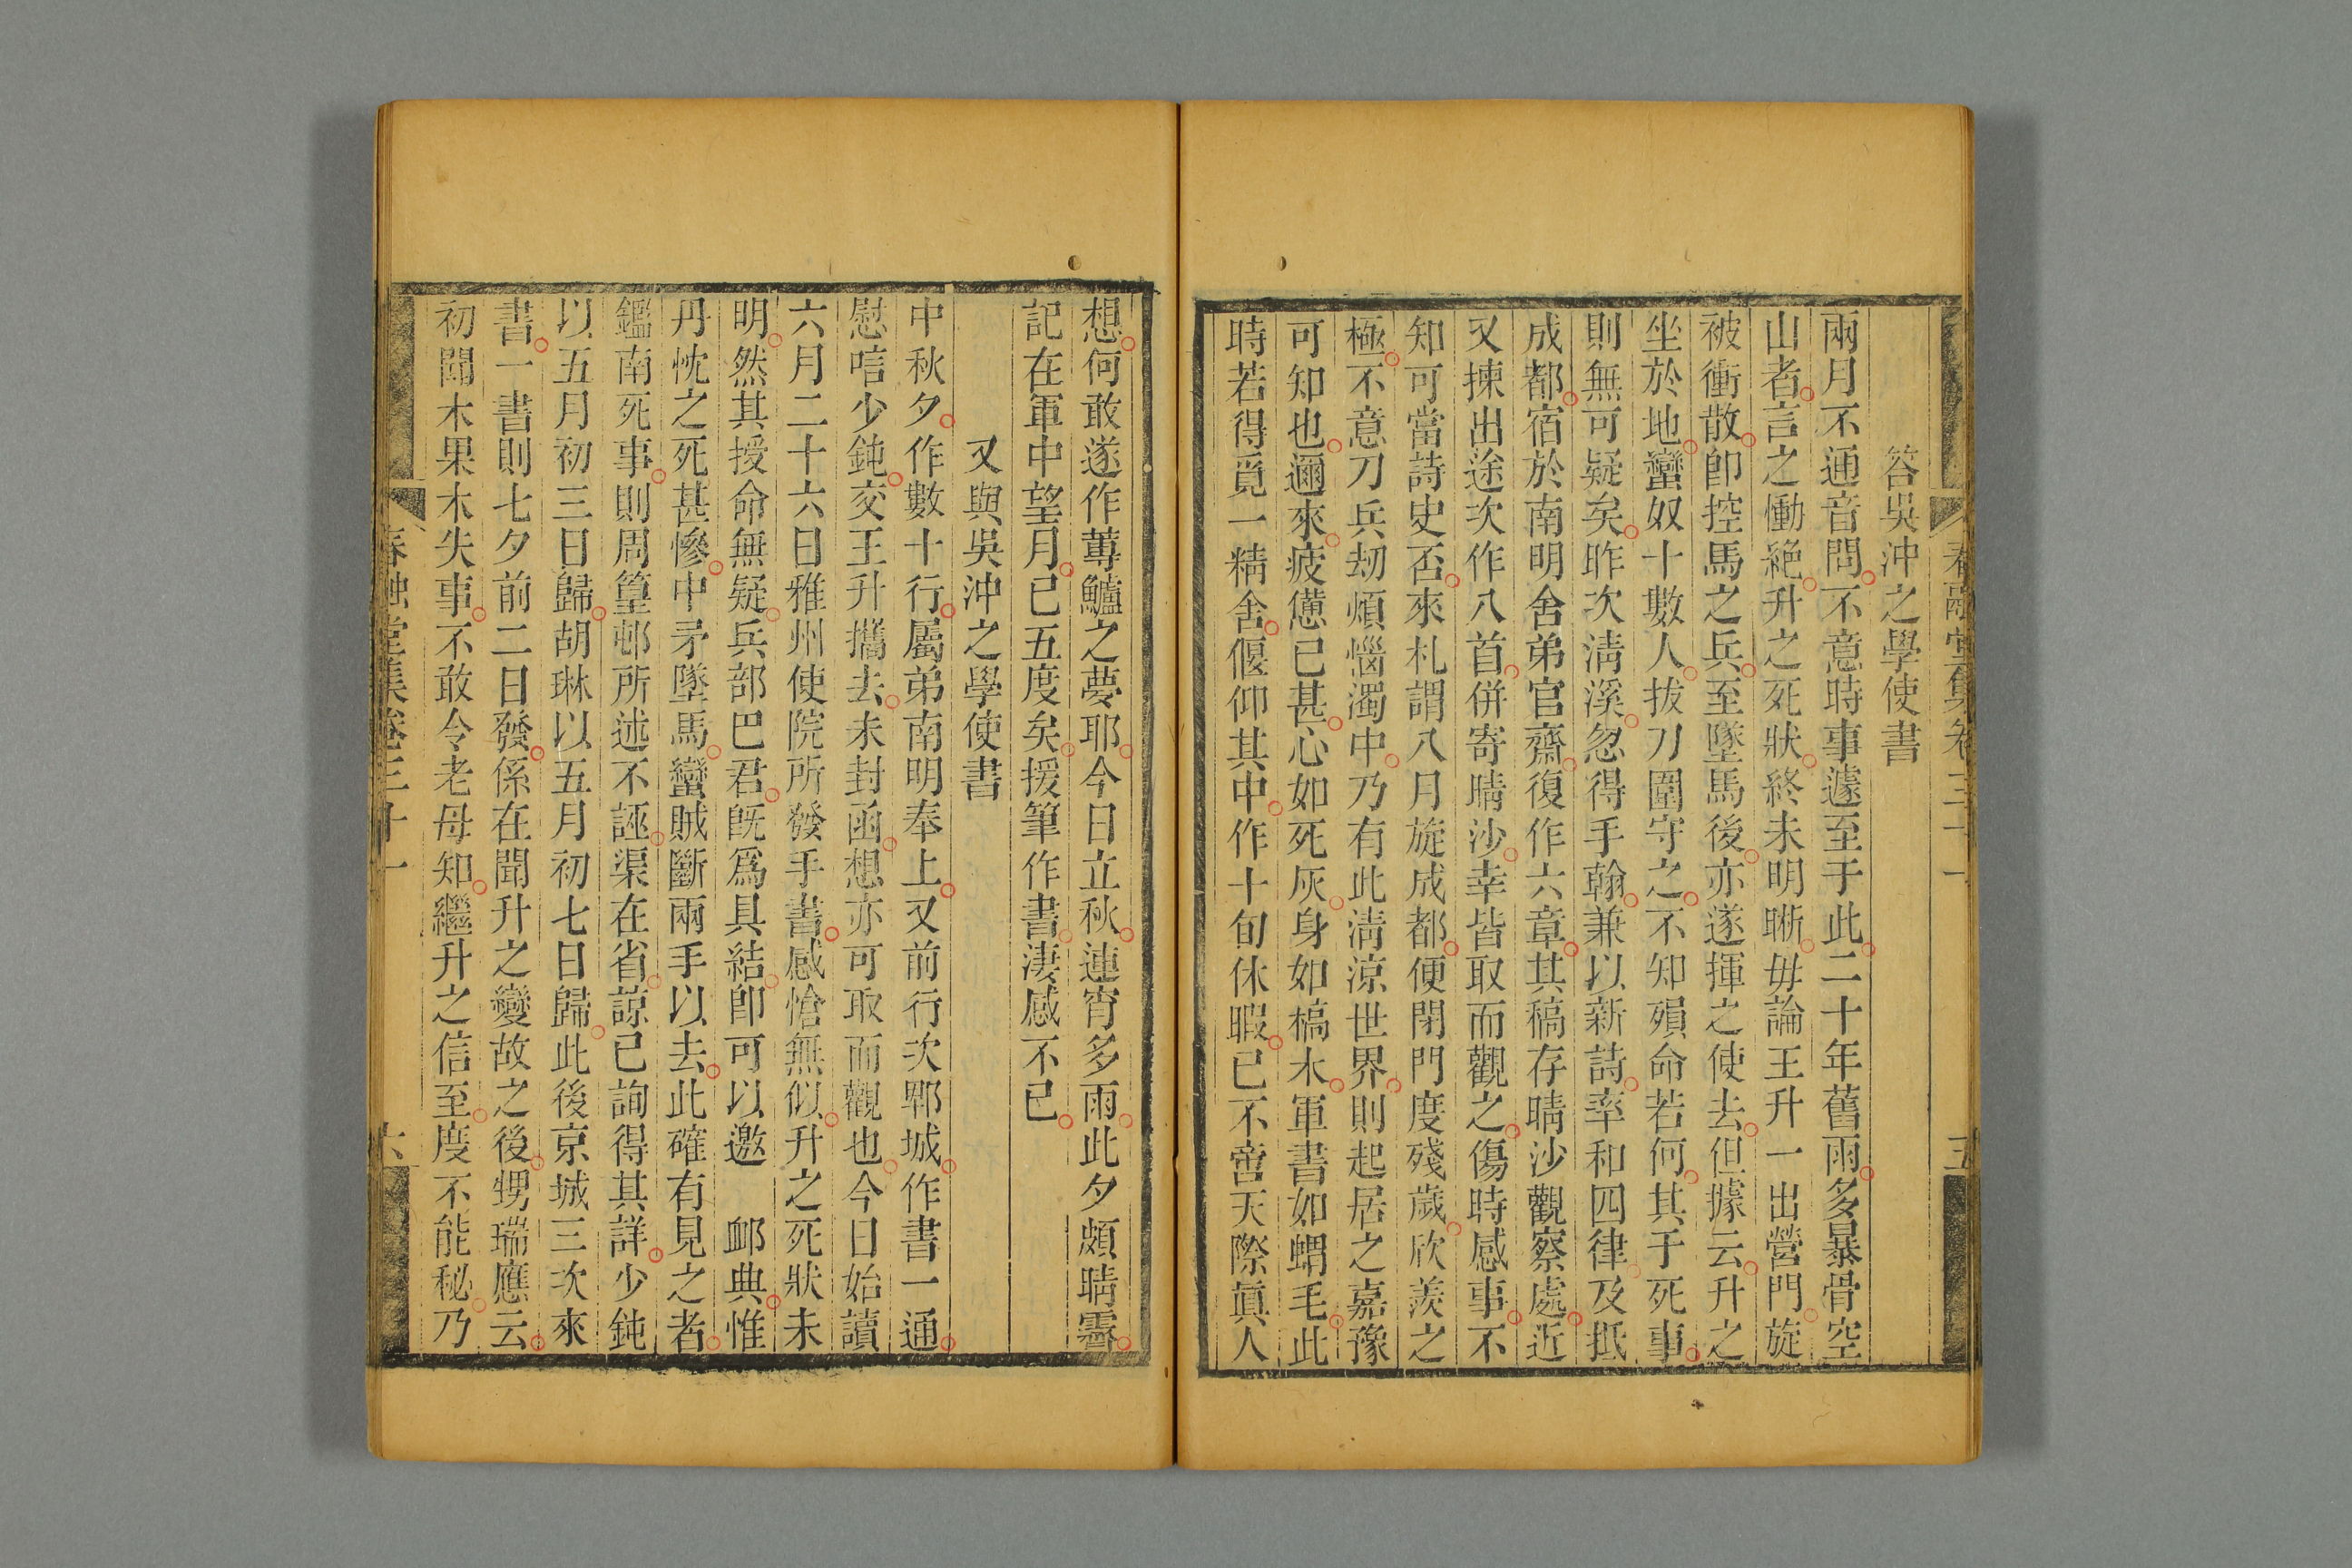 春融堂集卷三十一
五
答吳沖之學使書
兩月不通音問不意時事遽至于此二十年舊雨多暴骨空
山者言之慟絶升之死狀終未明晰毋論王升一出營門旋
被衝散卽控馬之兵至墜馬後亦遂揮之使去但據云升之
坐於地蠻奴十數人拔刀圍守之不知殞命若何其于死事
則無可疑矣昨次清溪忽得手翰兼以新詩率和四律及抵
成都宿於南明舍弟官齋復作六章其稿存晴沙觀察處近
又揀出途次作八首併寄晴沙幸皆取而觀之傷時感事不
知可當詩史否來札謂八月旋成都便閉門度殘歲欣羨之
極不意刀兵劫煩惱濁中乃有此清涼世界則起居之嘉豫
可知也邇來疲憊已甚心如死灰身如槁木軍書如蝟毛此
時若得覓一精舍偃仰其中作十旬休暇已不啻天際眞人
想何敢遂作蓴鱸之夢耶今日立秋連宵多雨此夕頗晴霽
記在軍中望月已五度矣援筆作書淒感不已
又與吳沖之學使書
中秋夕作數十行屬弟南明奉上又前行次郫城作書一通
慰唁少鈍交王升攜去未封函想亦可取而觀也今日始讀
六月二十六日雅州使院所發手書感愴無似升之死狀未
明然其授命無疑兵部巴君旣爲具結卽可以邀 卹典惟
丹忱之死甚慘中矛墜馬蠻賊斷兩手以去此確有見之者
鑑南死事則周篁邨所述不誣渠在省諒已詢得其詳少鈍
以五月初三日歸胡琳以五月初七日歸此後京城三次來
書一書則七夕前二日發係在聞升之變故之後甥瑞應云
初聞木果木失事不敢令老母知繼升之信至度不能秘乃
春融堂集卷三十一
六